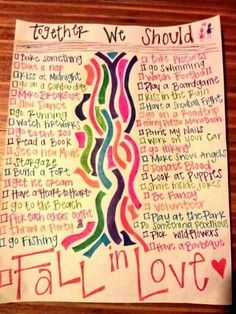 Together We Should
Bake something
Take a nap
Kiss at Midnight
go on a
Make Breakfast
Slow Dance
Go Running
Watch Fireworks
go to the Zoo
Read a Book
Set a new
Stargaze
Build a Fort
get ice cream
Have a Heart to Heart
go to the Beach
Pick each others outfit
Throw a Party
go Fishing
Take Pictures
go Swimming
Watch Football
Play a Boardgame
Kiss in the Rain
Have a Snowball Fight
go on a Roadtrip
Paint my Nails
Work on your Car
go Hiking
Make Snow Angels
Look at Puppies
Share inside Jokes
Be Fancy
Volunteer
Play at the Park
Do Something
Pick Wildflowers
Have a Barbeque
Fall in Love